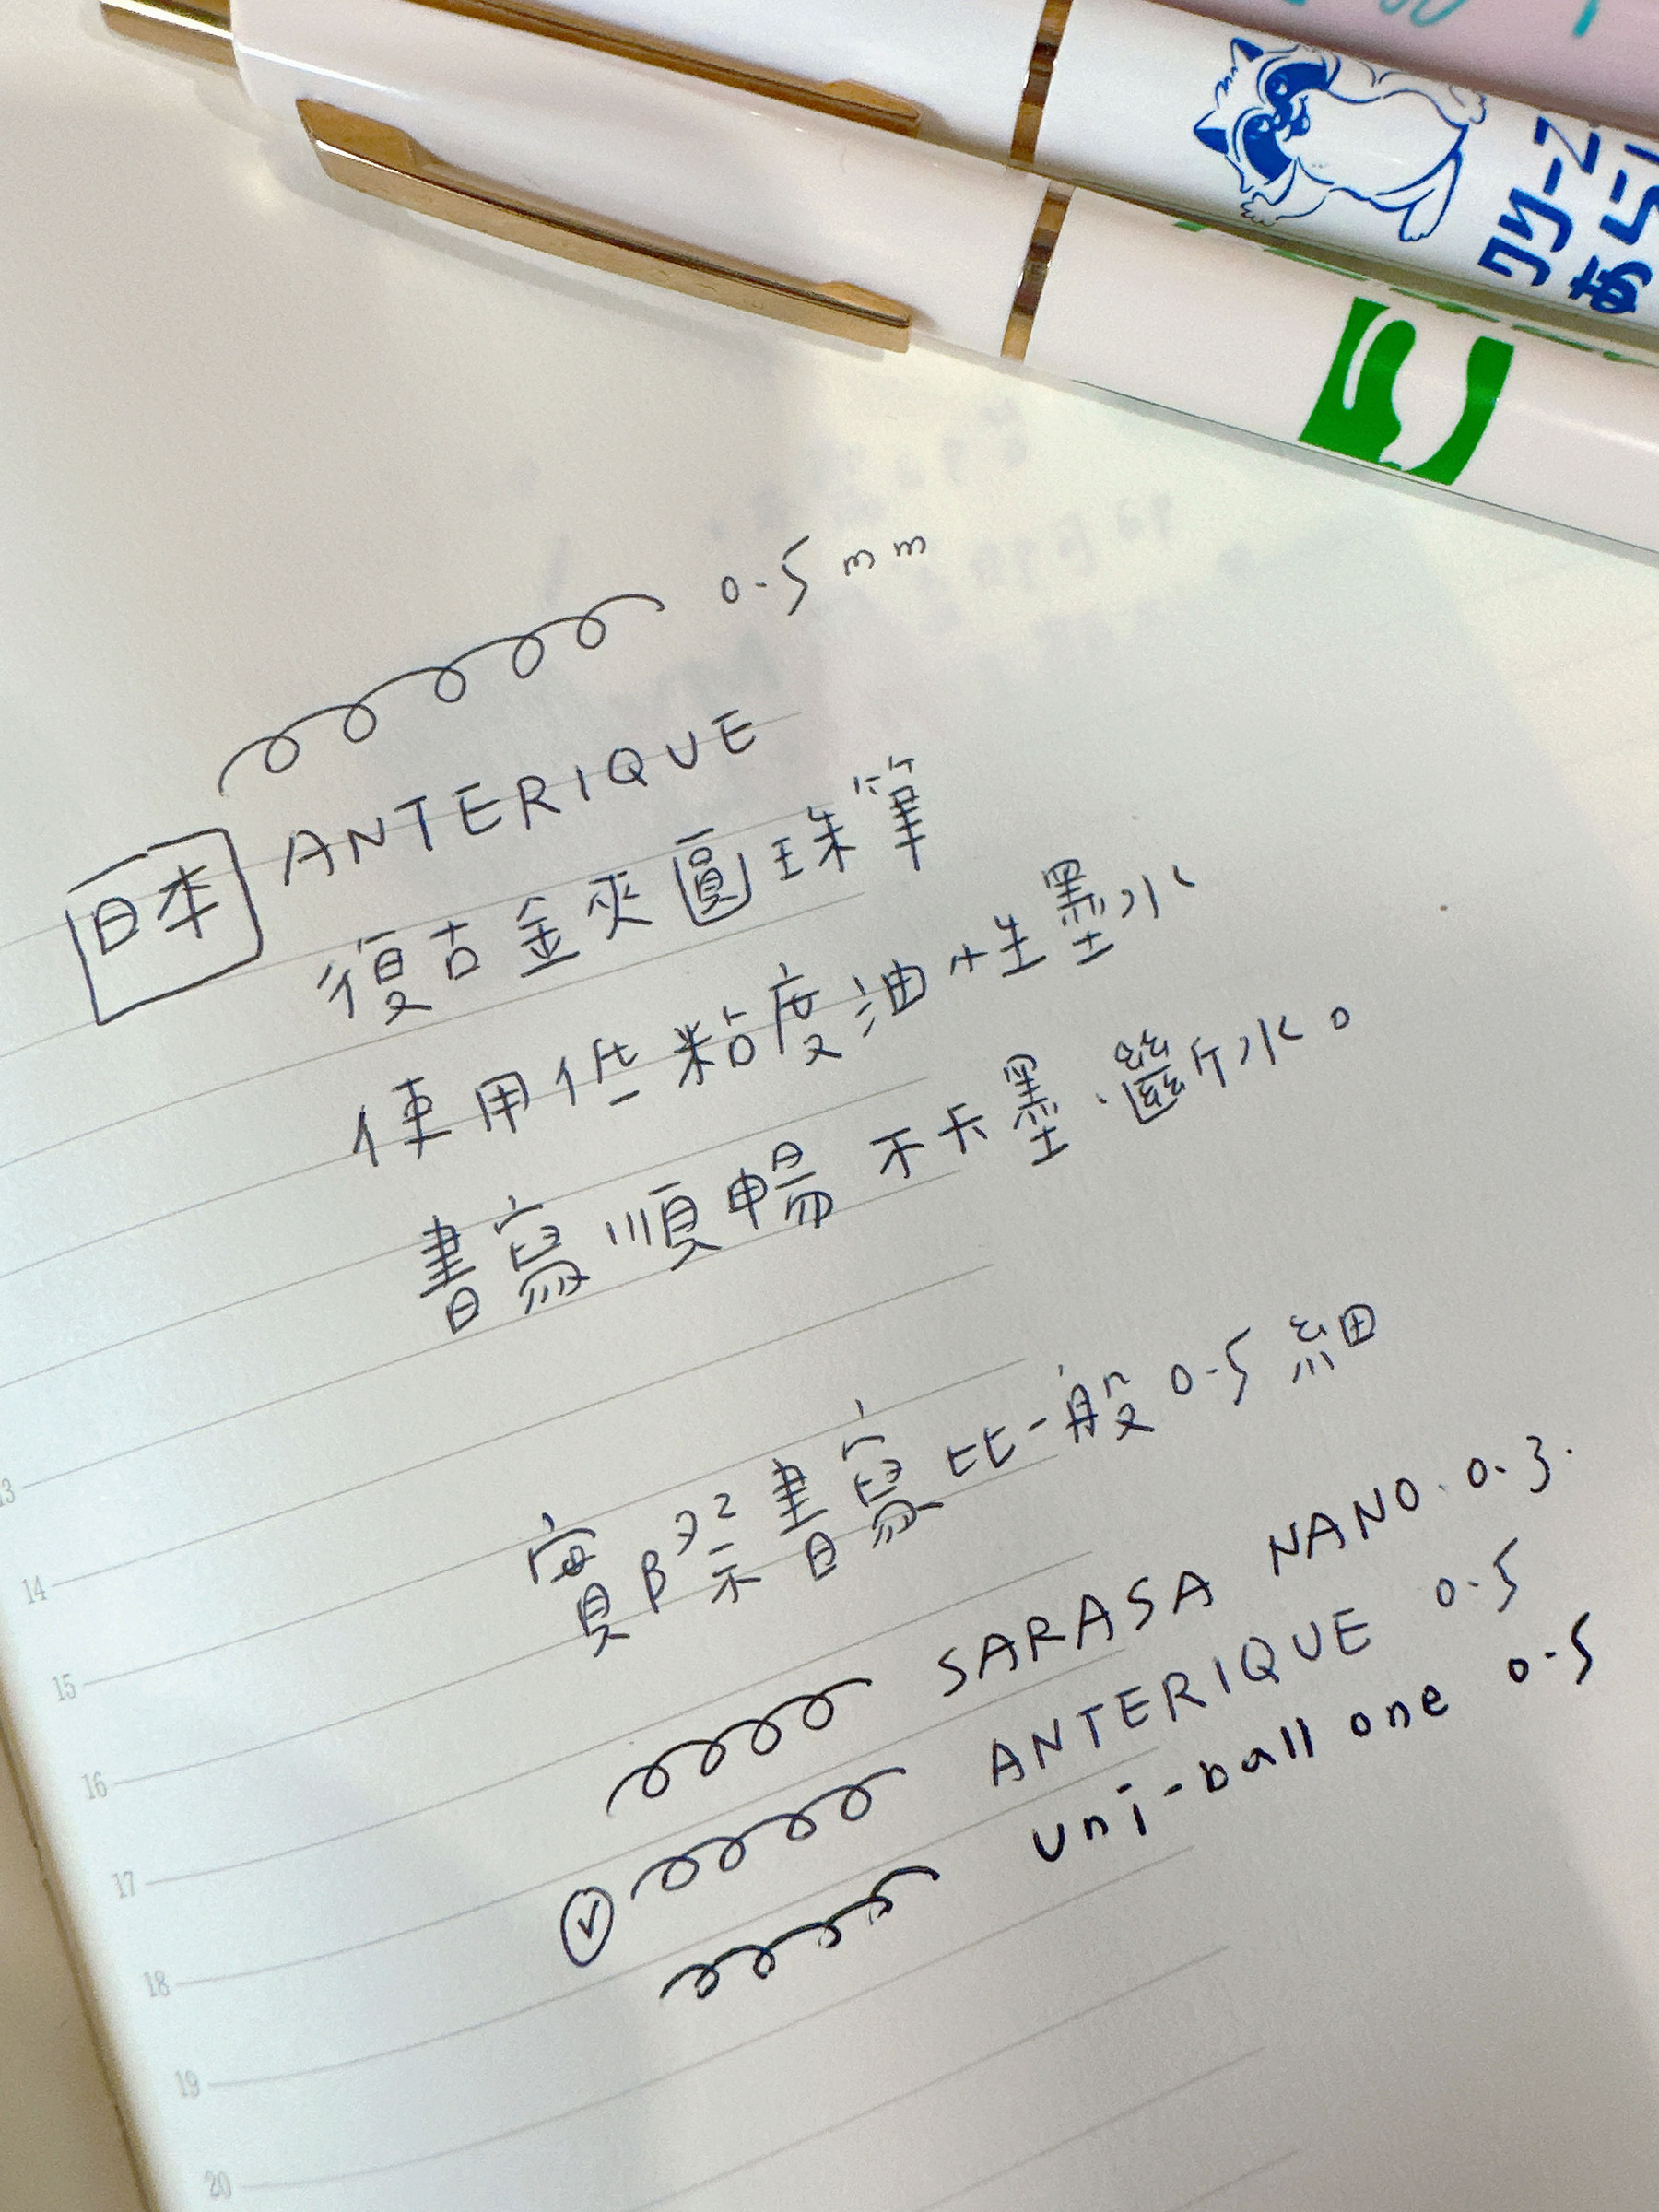 クリーニ
あらい
0.5 mm
日本 ANTERIQUE
復古金夾圓珠筆
使用低粘度油性墨水
書寫順暢 不卡墨.斷水。
實際書寫比一般0.5細
SARASA NANO.0.3.
ANTERIQUE 0.5
uni-ball one 0.5
13
14
15
16
17
18
19
20